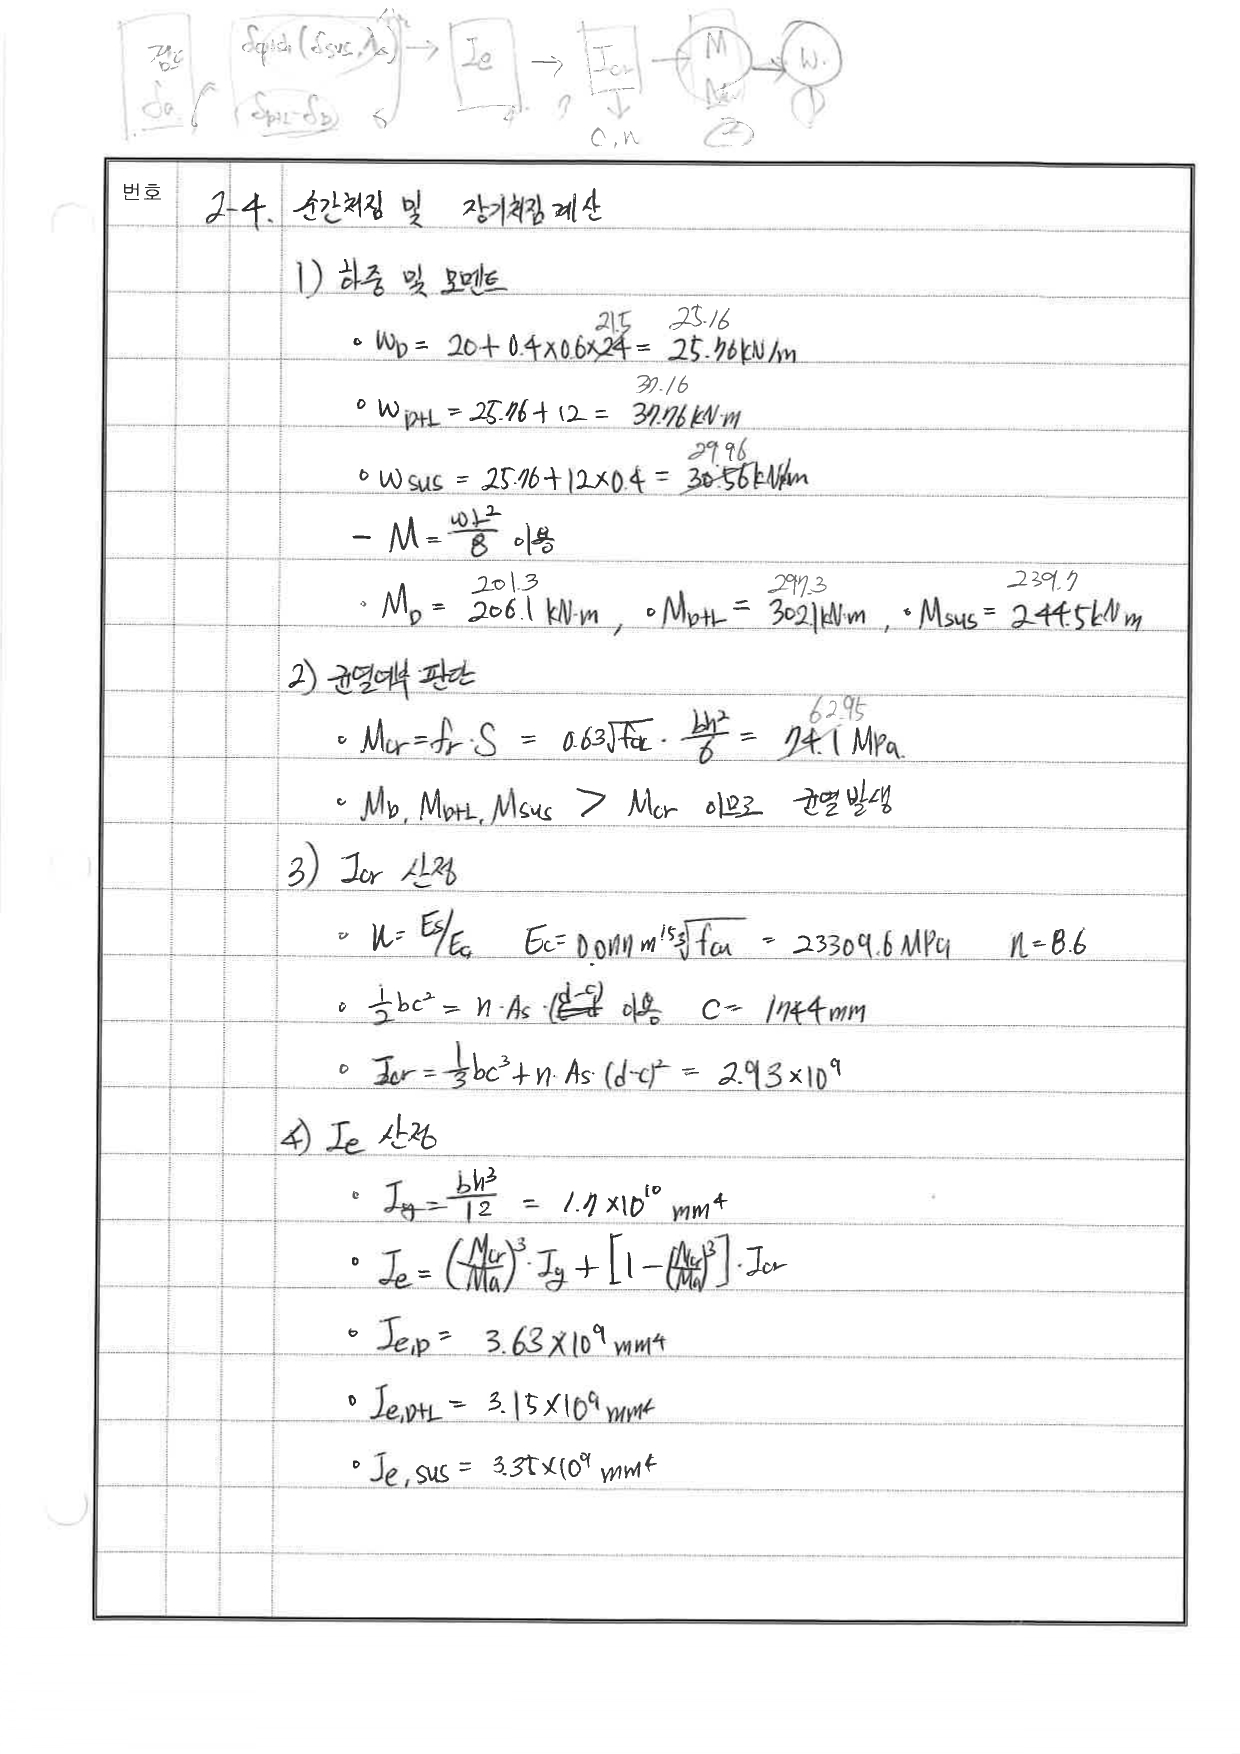 검토 δa
δqist(δsus,λΔ) → Ie → Icr → M → W.
δD+L-δD
Mcr
C, n
②
번호
2-4. 순간처짐 및 장기처짐 계산
1) 하중 및 모멘트
21.5 25.16
◦ WD = 20+0.4×0.6×24 = 25.76kN/m
37.16
◦ WD+L = 25.76+12 = 37.76kN·m
29.96
◦ Wsus = 25.76+12×0.4 = 30.56kN/m
- M = wL²/8 이용
201.3 297.3 239.7
· MD = 206.1 kN·m, ◦MD+L = 302.1kN·m, •Msus = 244.5kNm
2) 균열여부 판단
62.95
◦ Mcr=fr·S = 0.63√fck · bh²/6 = 74.1 MPa.
◦ MD, MD+L, Msus > Mcr 이므로 균열발생
3) Icr 산정
◦ n= Es/Ec Ec= 0.077m^1.5 ³√fcu = 23309.6 MPa n=8.6
◦ ½bc² = n·As·(d-c) 이용 C= 174.4mm
◦ Icr = ⅓bc³+n·As·(d-c)² = 2.93×10⁹
4) Ie 산정
◦ Ig = bh³/12 = 1.7×10¹⁰ mm⁴
◦ Ie = (Mcr/Ma)³·Ig + [1-(Mcr/Ma)³]·Icr
◦ Ie,D = 3.63×10⁹ mm⁴
◦ Ie,D+L = 3.15×10⁹ mm⁴
◦ Ie,sus = 3.35×10⁹ mm⁴